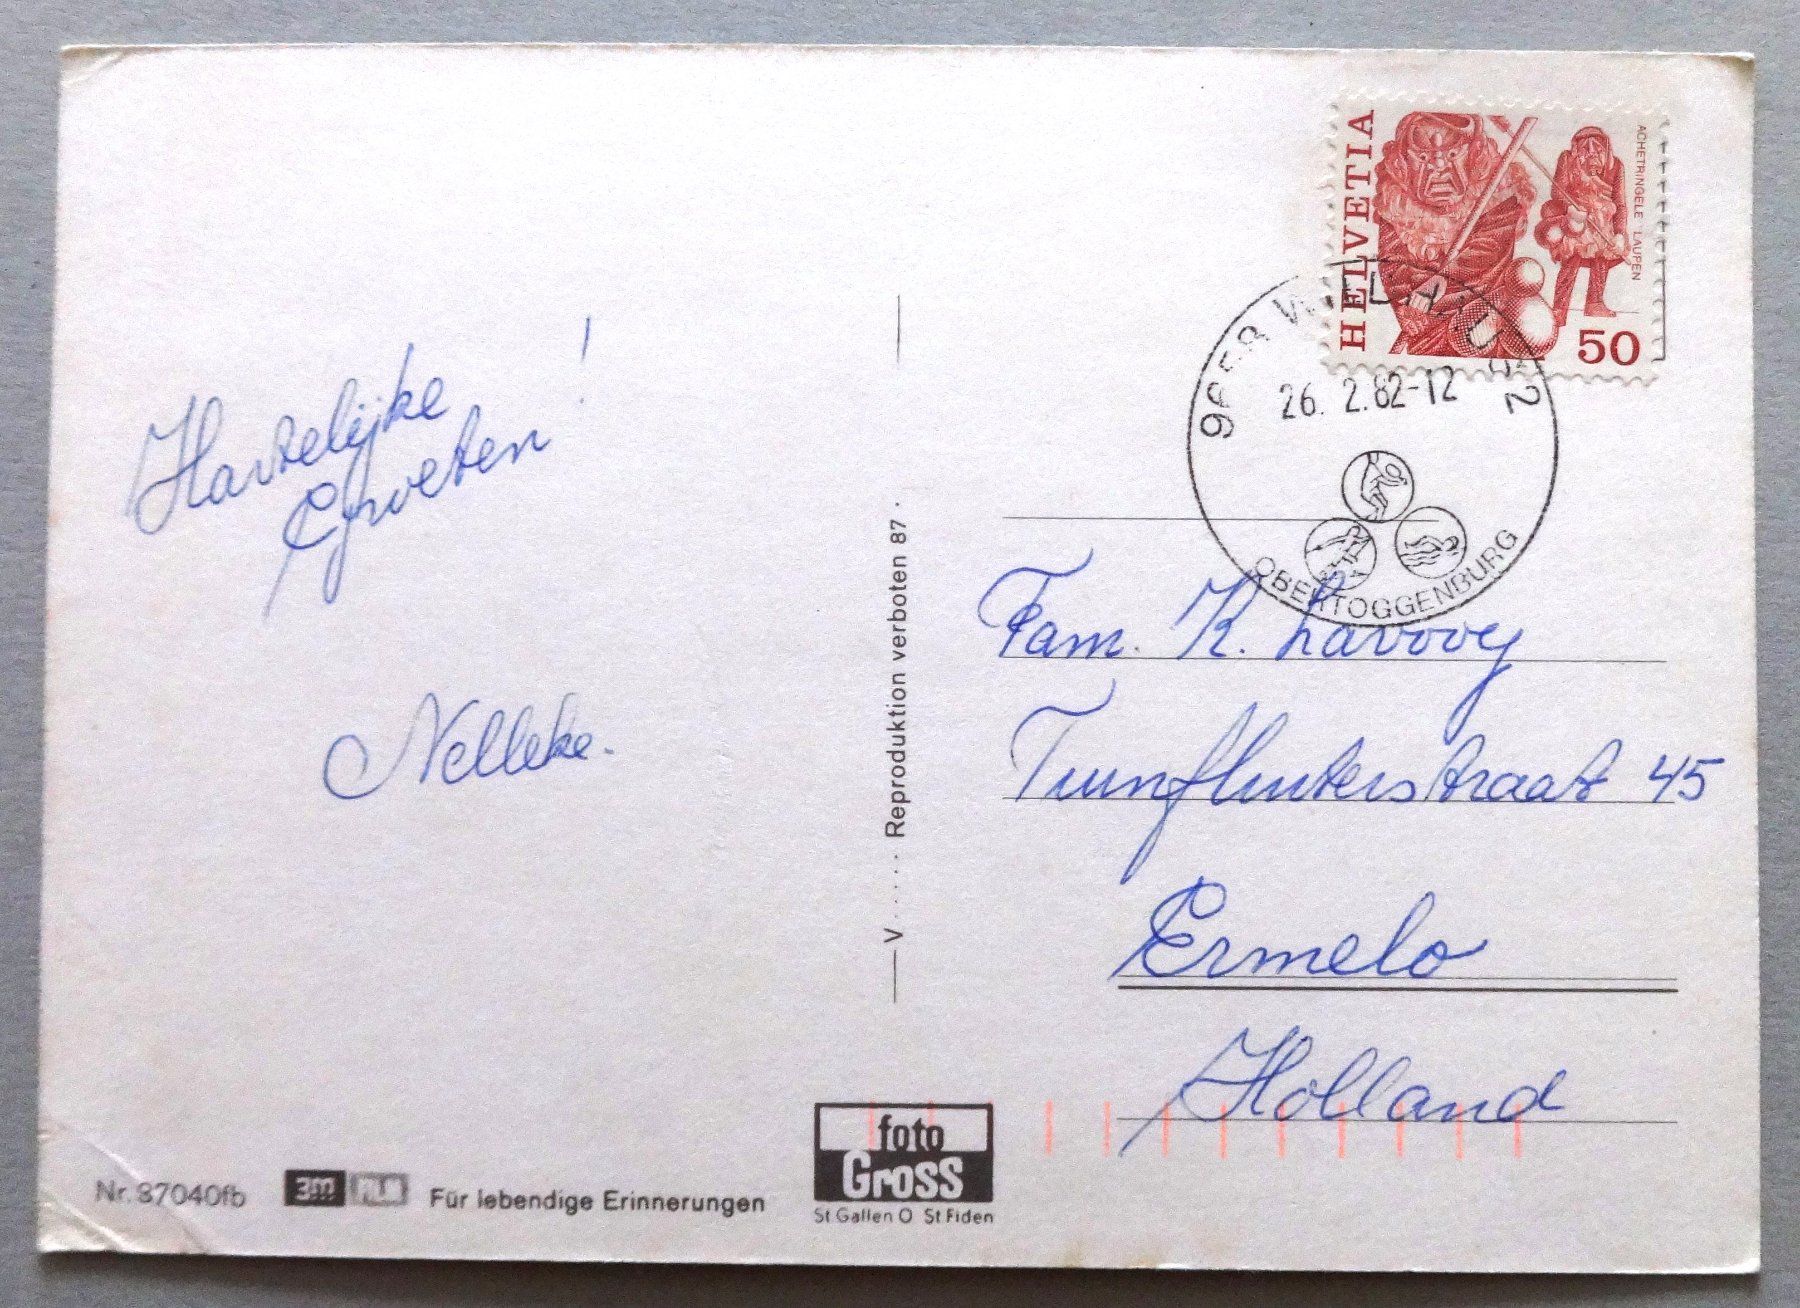 Hartelijke
Groeten !
Nelleke.
Nr. 87040fb
3m
Für lebendige Erinnerungen
V..... Reproduktion verboten 87 .
foto
Gross
St Gallen O St Fiden
HELVETIA
ACHETRINGELE LAUPEN
50
WILDHAUS 2
26. 2.82-12
OBERTOGGENBURG
Fam. K. Lavooy
45
Ermelo
Holland